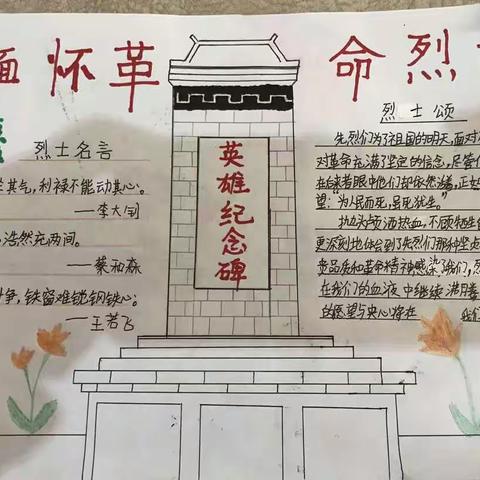 缅怀革命烈
烈士名言
其气，利禄不能动其心。
——李大钊
浩然充两间。
——蔡和森
争，铁窗难锁钢铁心；
——王若飞
英雄纪念碑
烈士颂
先烈们为了祖国的明天，面对
对革命充满了坚定的信念，尽管
在后来者眼中他们却依然活着，正如
望："为人民而死，虽死犹生。"
抛头颅洒热血，不顾牺牲
更深刻地体会到了先烈们那种坚贞
贵品质和革命精神感染我们，烈
在我们的血液中继续沸腾
的愿望与决心将在
我们